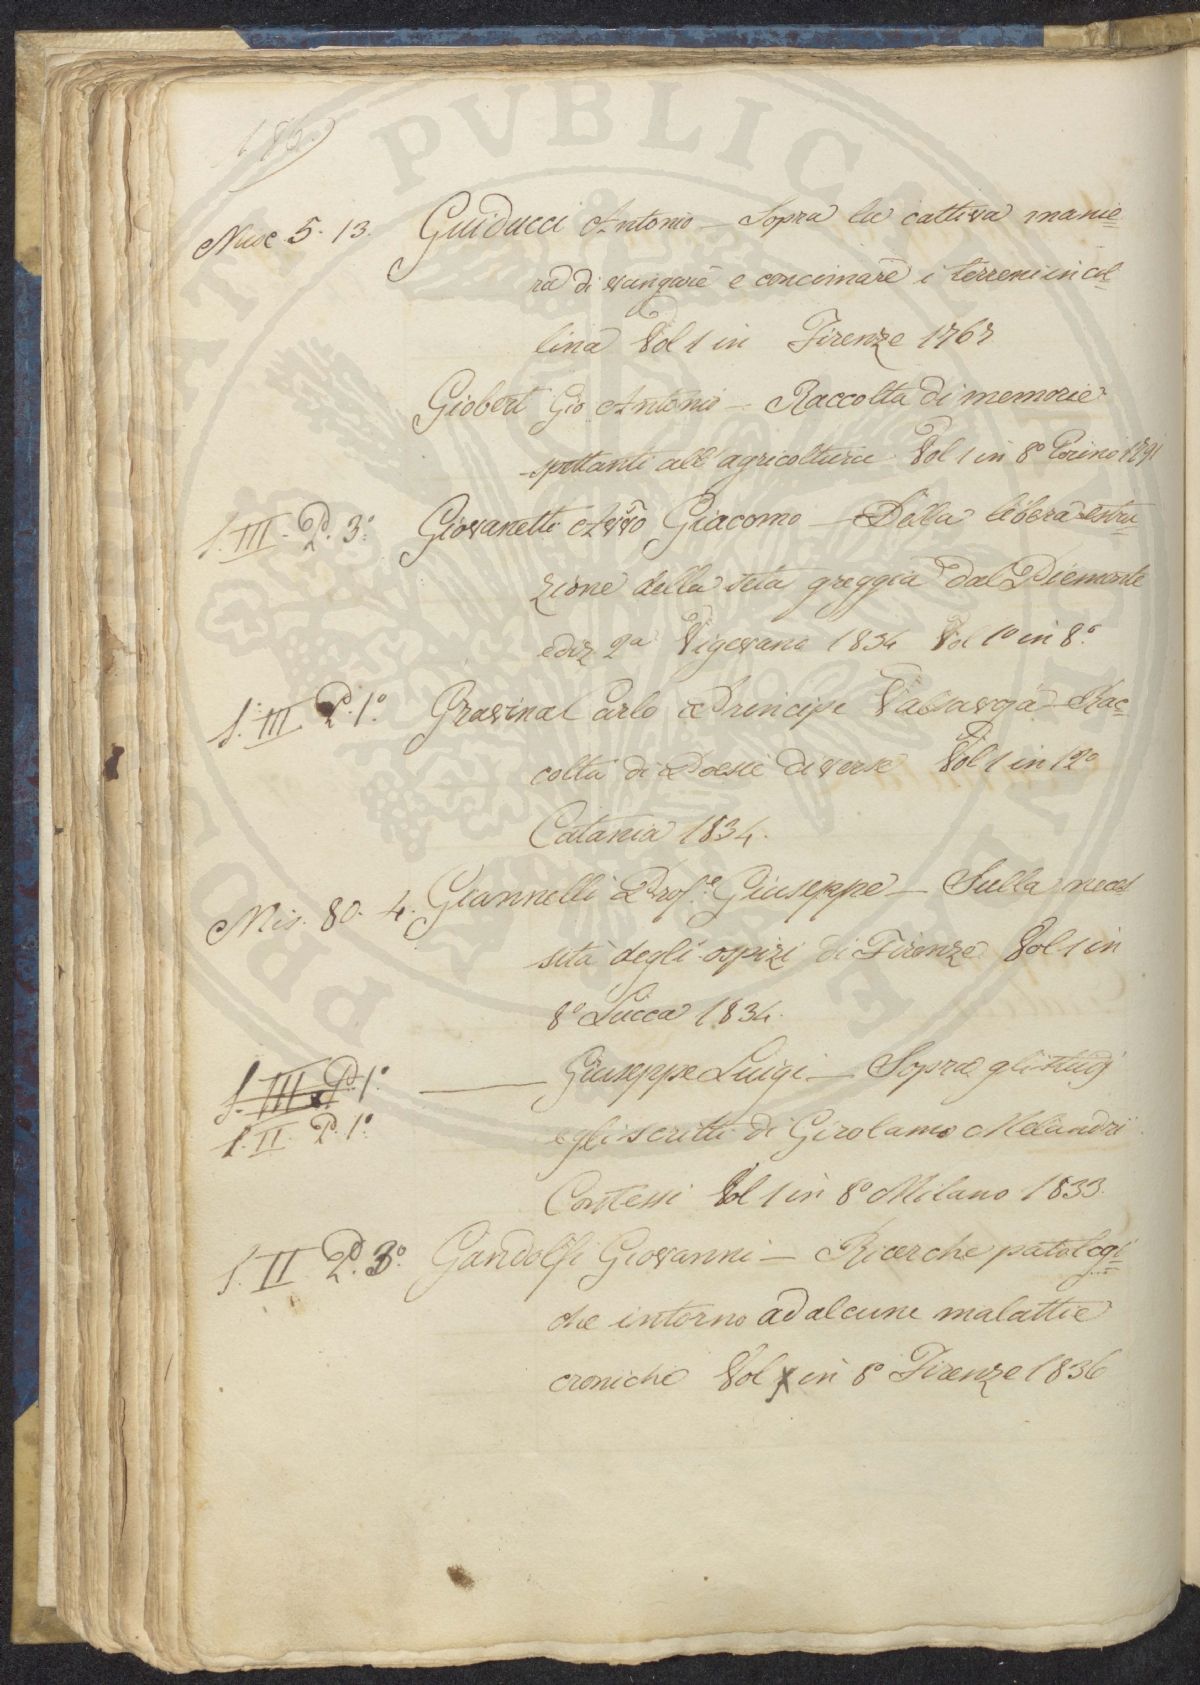 186.
Misc. 5. 13. Guiducci Antonio – Sopra la cattiva manie=
ra di vangare e concimare i terreni in col=
lina Vol 1 in Firenze 1767
Giobert Gio Antonio – Raccolta di memorie
spettanti all'agricoltura Vol 1 in 8º Torino 1791
S. III. P. 3º. Giovanetti Avvo Giacomo – Della libera estra=
zione della seta greggia dal Piemonte
ediz 2ª Vigevano 1834 Vol 1º in 8º.
S. III P. 1º. Gravina Carlo Principe Valsavoja Rac=
colta di Poesie diverse Vol 1 in 12º
Catania 1834.
Mis. 80. 4. Giannelli Profe. Giuseppe – Sulla neces
sità degli ospizi di Firenze Vol 1 in
8º Lucca 1834.
S. III P. 1º. —— Giuseppe Luigi – Sopra gli studj
S. II. P. 1º. e gli scritti di Girolamo Melandri
Contessi Vol 1 in 8º Milano 1833.
S. II P. 3º. Gandolfi Giovanni – Ricerche patologi=
che intorno ad alcune malattie
croniche Vol in 8º Firenze 1836